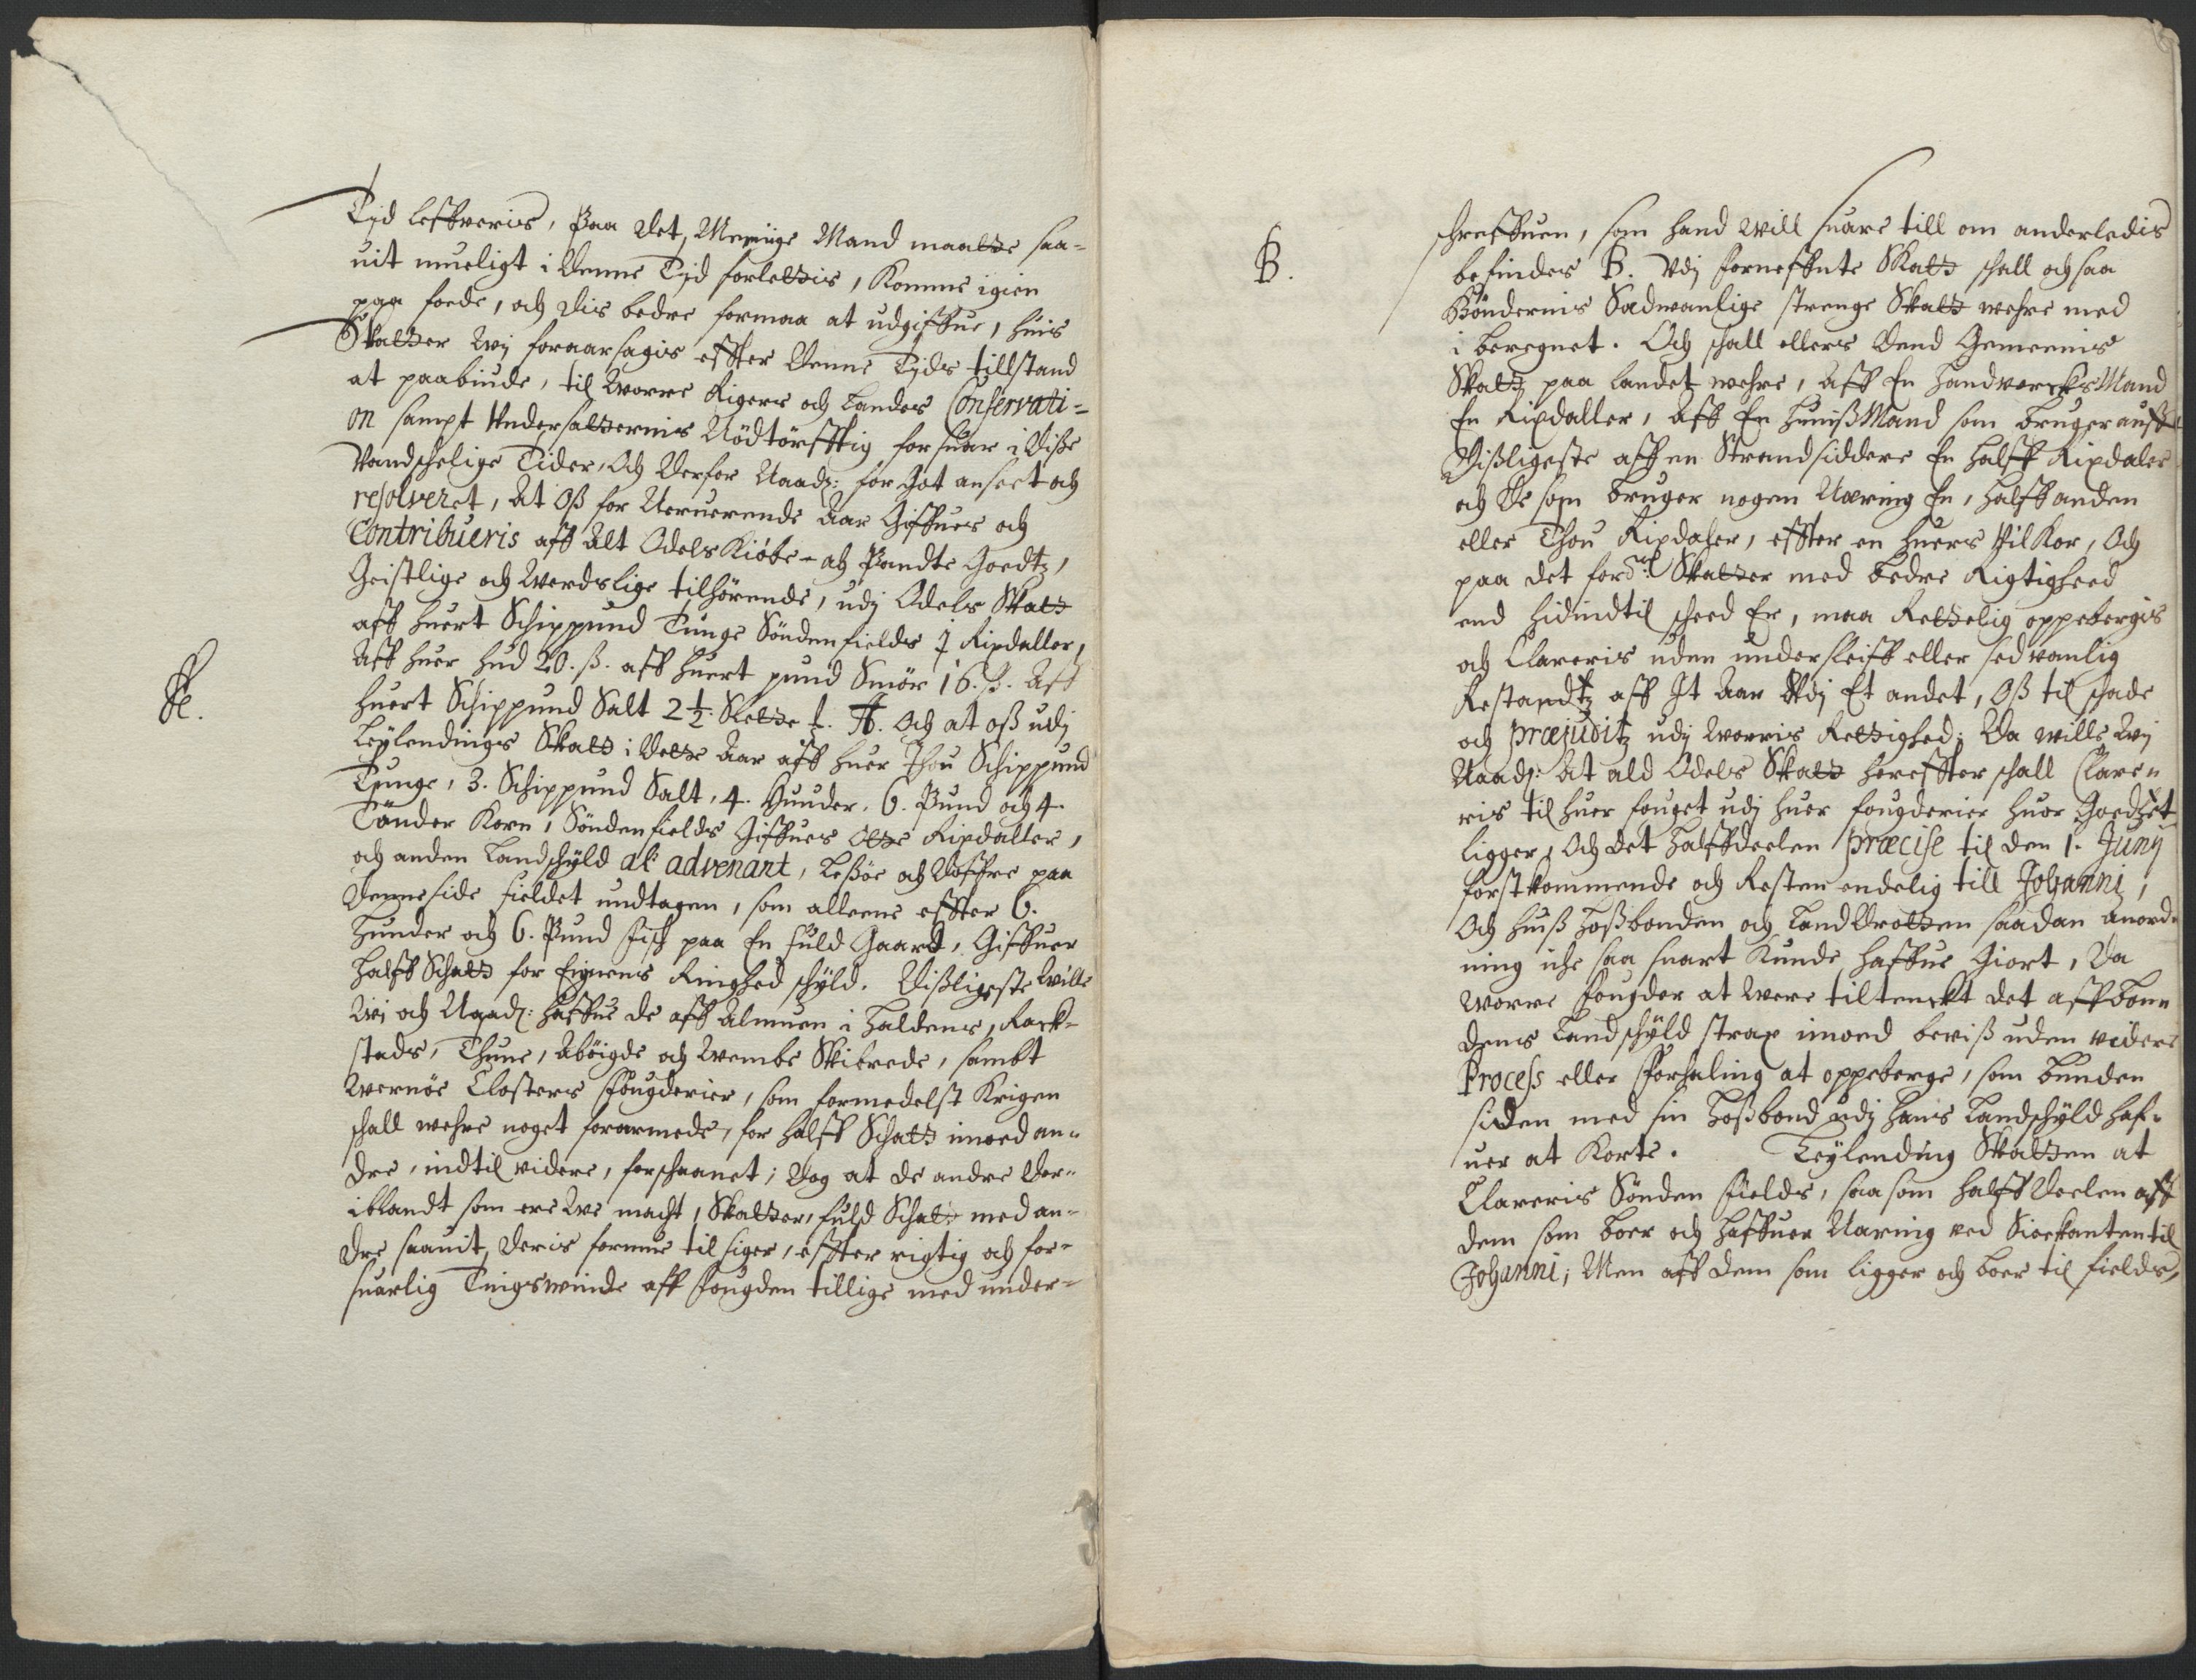 Tid leffveris, Paa det, Menige Mand maatte saa-
uit mueligt i denne Tid forlettis, Komme igien
paa foede, och dis bedre formaa at udgiffue, huis
Skatter Wij foraarsagis effter denne Tids tillstand
at paabiude, til Worre Rigers och Landes Conservati-
on sampt Undersatternis Nödtörfftig forsuar i disse
Vandschelige Tider, Och derfor Naadz: for Got anseet och
resolveret, At Oß for Neruerende Aar Giffues och
Contribueris aff Alt Odels Kiöbe- och Pandte Goedtz,
Geistlige och Werdslige tilhörende, udj Odels Skatt
aff huert Schippund Tunge Söndenfields 1 Rixdaller,
Aff huer hud 20. ß. aff huert pund Smör 16. ß. Aff
huert Schippund Salt 2½. Slette
Och at oß udj
Leylendings Skatt i dette Aar aff huer Thou Schippund
Tunge, 3. Schippund Salt, 4. Huuder, 6. Pund och 4.
Tönder Korn, Söndenfields Giffues Otte Rixdaller,
och anden Landschyld al advenant, Leßöe och
paa
denneside fieldet undtagen, som alleene effter 6.
Hunder och 6. Pund fisch paa En fuld Gaard, Giffuer
Halff Schatt for Eignens Ringhed schyld. Dißligeste Wille
Wij och Naadz: haffue de aff Almuen i Haldens, Rack-
stads, Thune, Aböigde och Wembe Skibrede, sambt
Wernöe Closters Fougderier, som formedelst Krigen
schall wehre noget forarmede, for halff Schatt imoed an-
dre, indtil videre, forschaanet; Dog at de andre der-
iblandt som ere wed macht, Skatter, fuld Schatt med an-
dre saauit, deris formue til siger, effter rigtig och for-
suarlig Tingswinde aff fougden tillige med under-
schreffuen, som hand will suare till om anderledis
B.
befindes B. Vdj forneffnte Skatt schall och saa
Böndernis Sadwanlige strenge Skatt wehre med
i beregnet. Och schall ellers dend Gemeenis
Skatt paa Landet wehre, Aff En Handwercks Mand
En Rixdaller, Aff En HuusMand som bruger
Dißligeste aff en Strandsiddere En halff Rixdaler
och de som bruger nogen Næring En, halffanden
eller Thou Rixdaler, effter en huers Vilkor, Och
paa det fornd: Skatter med bedre Rigtigheed
end hidindtil scheed Er, maa Rettelig oppebergis
och Clareris uden underschleiff eller sedvanlig
Restandtz aff It Aar Udj Et andet, Oß til schade
och præjuditz udj Worris Rettighed; Da wille Wij
Naadz: At ald Odels Skatt hereffter schall Clare-
ris til huer fouget udj huer fougderier huor Goedzet
ligger, Och det Halffdeelen præcise til den 1. Junij
forstkommende och Resten endelig till Johanni,
Och huiß Hoßbonden och Landdrotten saadan Anord-
ning iche saa snart Kunde haffue Giort, Da
Worre Fougder at Were tiltenckt det aff Bon-
dens Landschyld strax imoed beviß uden videre
Process eller Forhaling at oppeberge, som bunden
siden med sin Hoßbond udj hans Landschyld haf-
uer at Korte. Leylending Skatten at
Clareris Sönden fields, saasom Halffdeelen aff
dem som boer och haffuer Næring ved Siøekanten til
Johanni; Men aff dem som ligger och boer til fields,